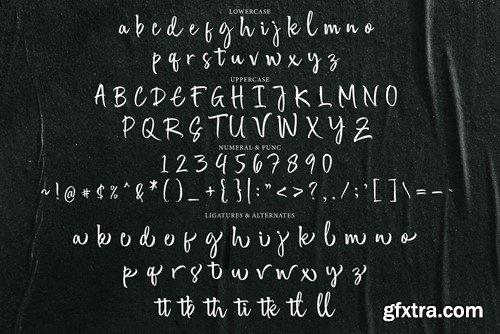 LOWERCASE
a b c d e f g h i j k l m n o
p q r s t u v w x y z
UPPERCASE
A B C D E F G H I J K L M N O
P Q R S T U V W X Y Z
NUMERAL & PUNC
1 2 3 4 5 6 7 8 9 0
~ ! @ # $ % ^ & * ( ) _ + { } | : " < > ? , . / ; ' [ ] \ = – `
LIGATURES & ALTERNATES
a b c d e f g h i j k l m n o
p q r s t u v w x y z
tt tb th ti tk tl ll
gfxtra.com